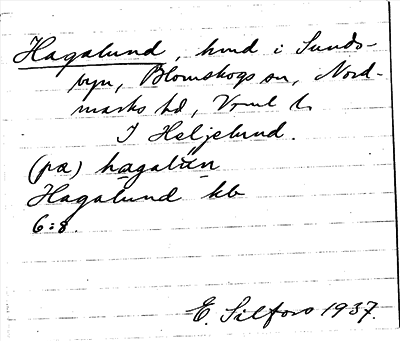 Hagalund, hmd i Sunds-
byn, Blomskogs sn, Nord-
marks hd, Vrml l.
I Heljelund.
(pa) hagalun
Hagalund kb
6:8.
E. Silfors 1937.